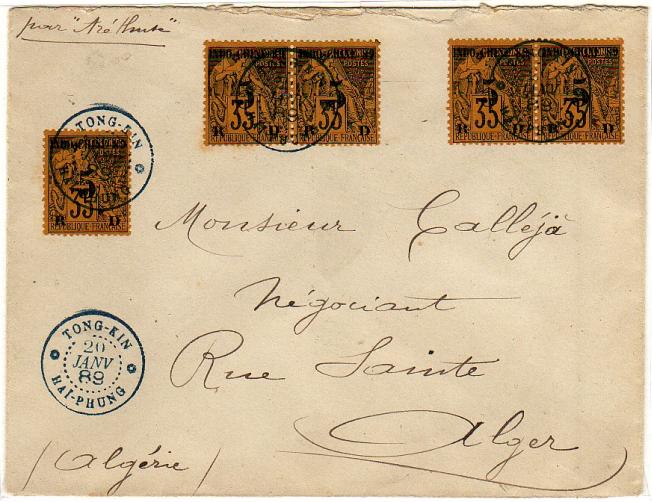 par "Aréthuse"
INDO-CHINE 89 INDO-CHINE 89
POSTES POSTES
5 5
35 35
R D R D
REPUBLIQUE FRANÇAISE REPUBLIQUE FRANÇAISE
INDO-CHINE 89 INDO-CHINE 89
POSTES POSTES
5 5
35 35
R D R D
REPUBLIQUE FRANÇAISE REPUBLIQUE FRANÇAISE
TONG-KIN
5
35
R D
REPUBLIQUE FRANÇAISE
Monsieur Calléjà
Négociant
TONG-KIN
20
JANV
89
HAI-PHUNG
Rue Sainte
Alger
(Algérie)